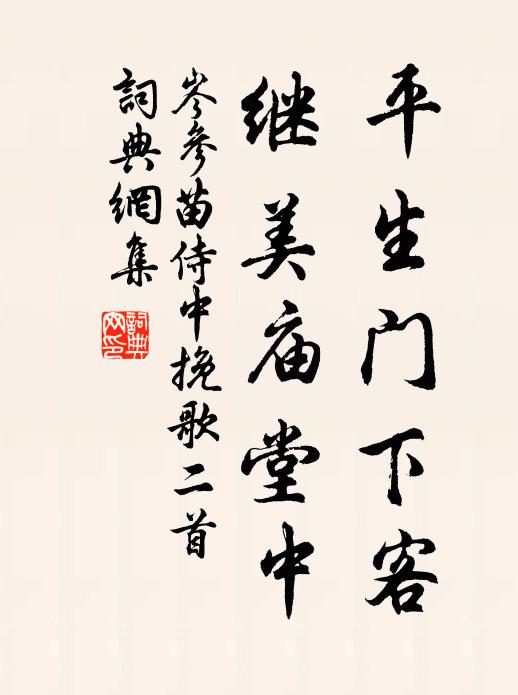 平生门下客
继美庙堂中
岑參苗侍中挽歌二首
詞典網集
詞典網印